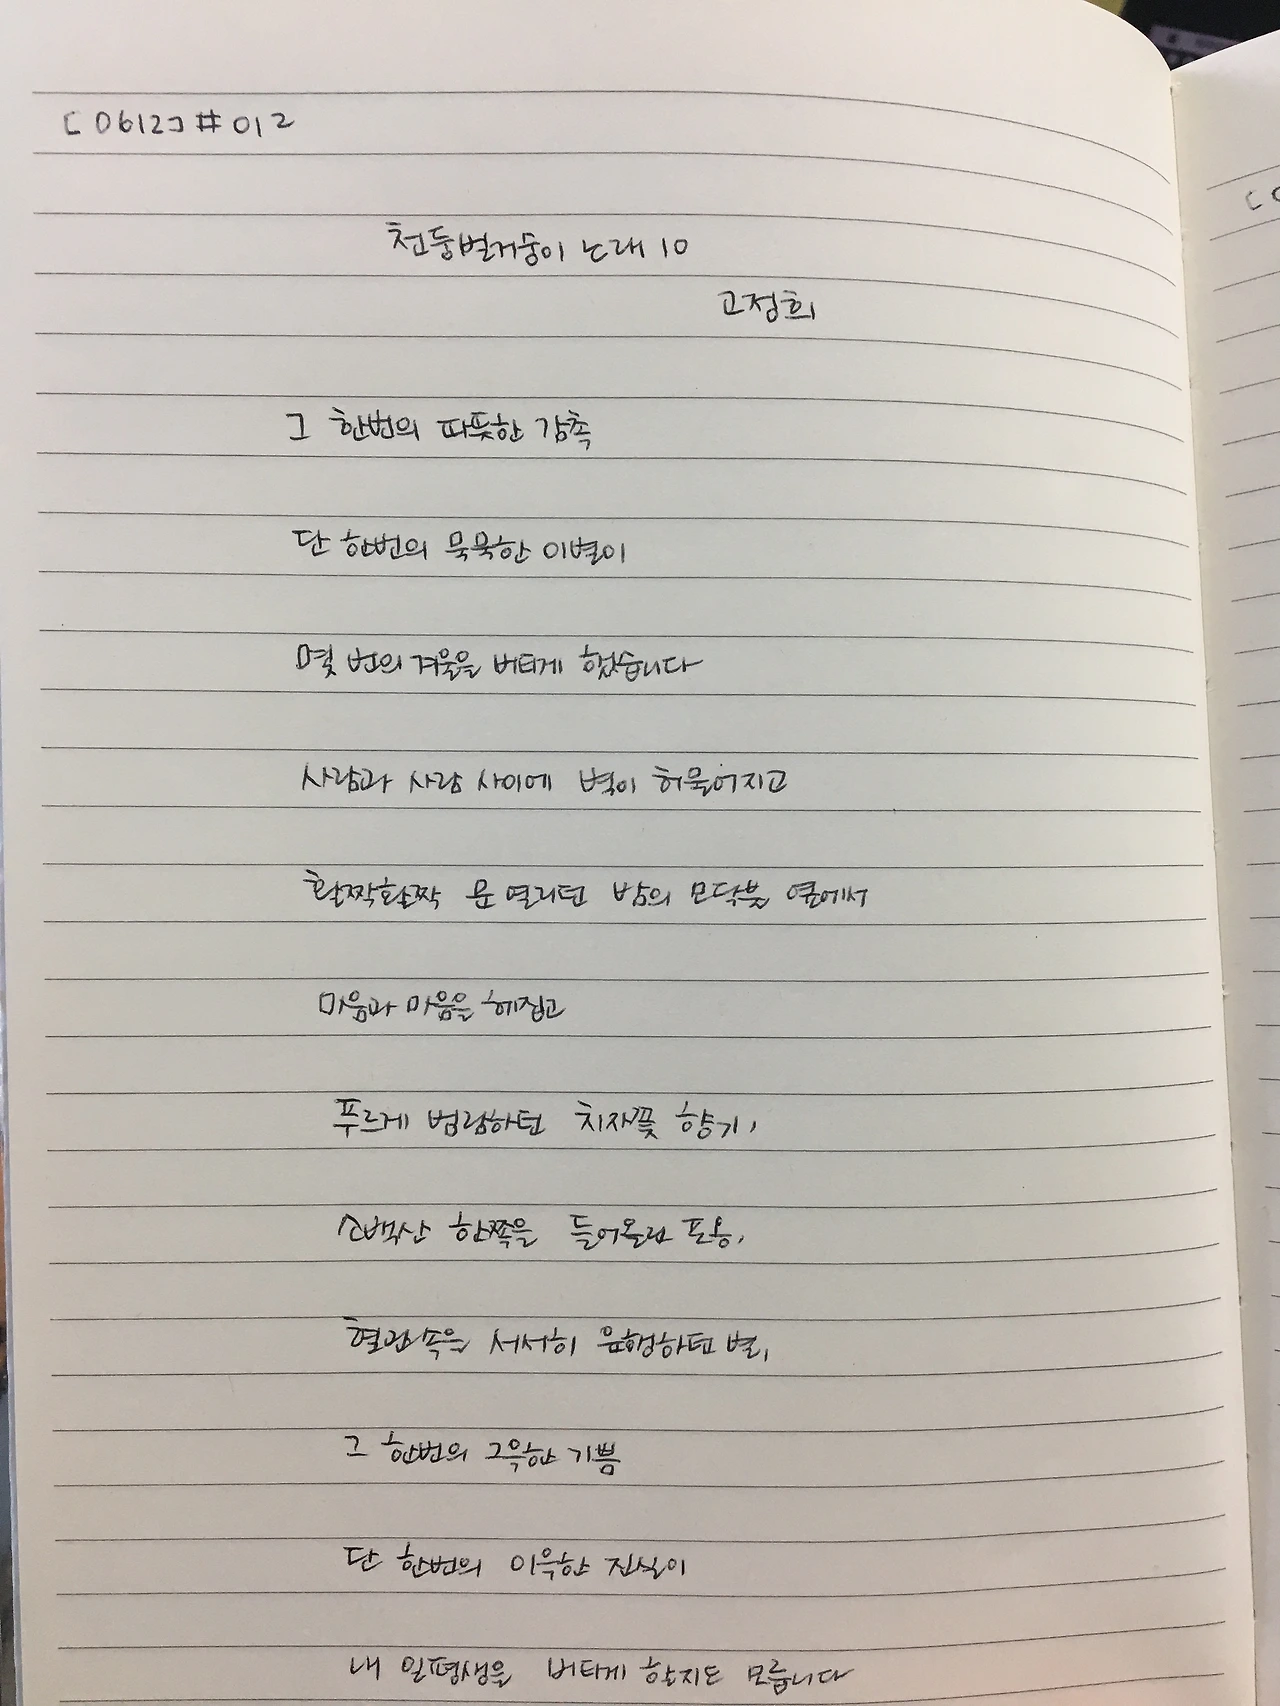 [0612] #012
천둥벌거숭이 노래 10
고정희
그 한번의 따뜻한 감촉
단 한번의 묵묵한 이별이
몇 번의 겨울을 버티게 했습니다
사람과 사람 사이에 벽이 허물어지고
활짝활짝 문 열리던 밤의 모닥불 옆에서
마음과 마음을 헤집고
푸르게 범람하던 치자꽃 향기,
소백산 한쪽을 들어올린 포옹,
혈관속을 서서히 운행하던 별,
그 한번의 그윽한 기쁨
단 한번의 이윽한 진실이
내 일평생을 버티게 할지도 모릅니다